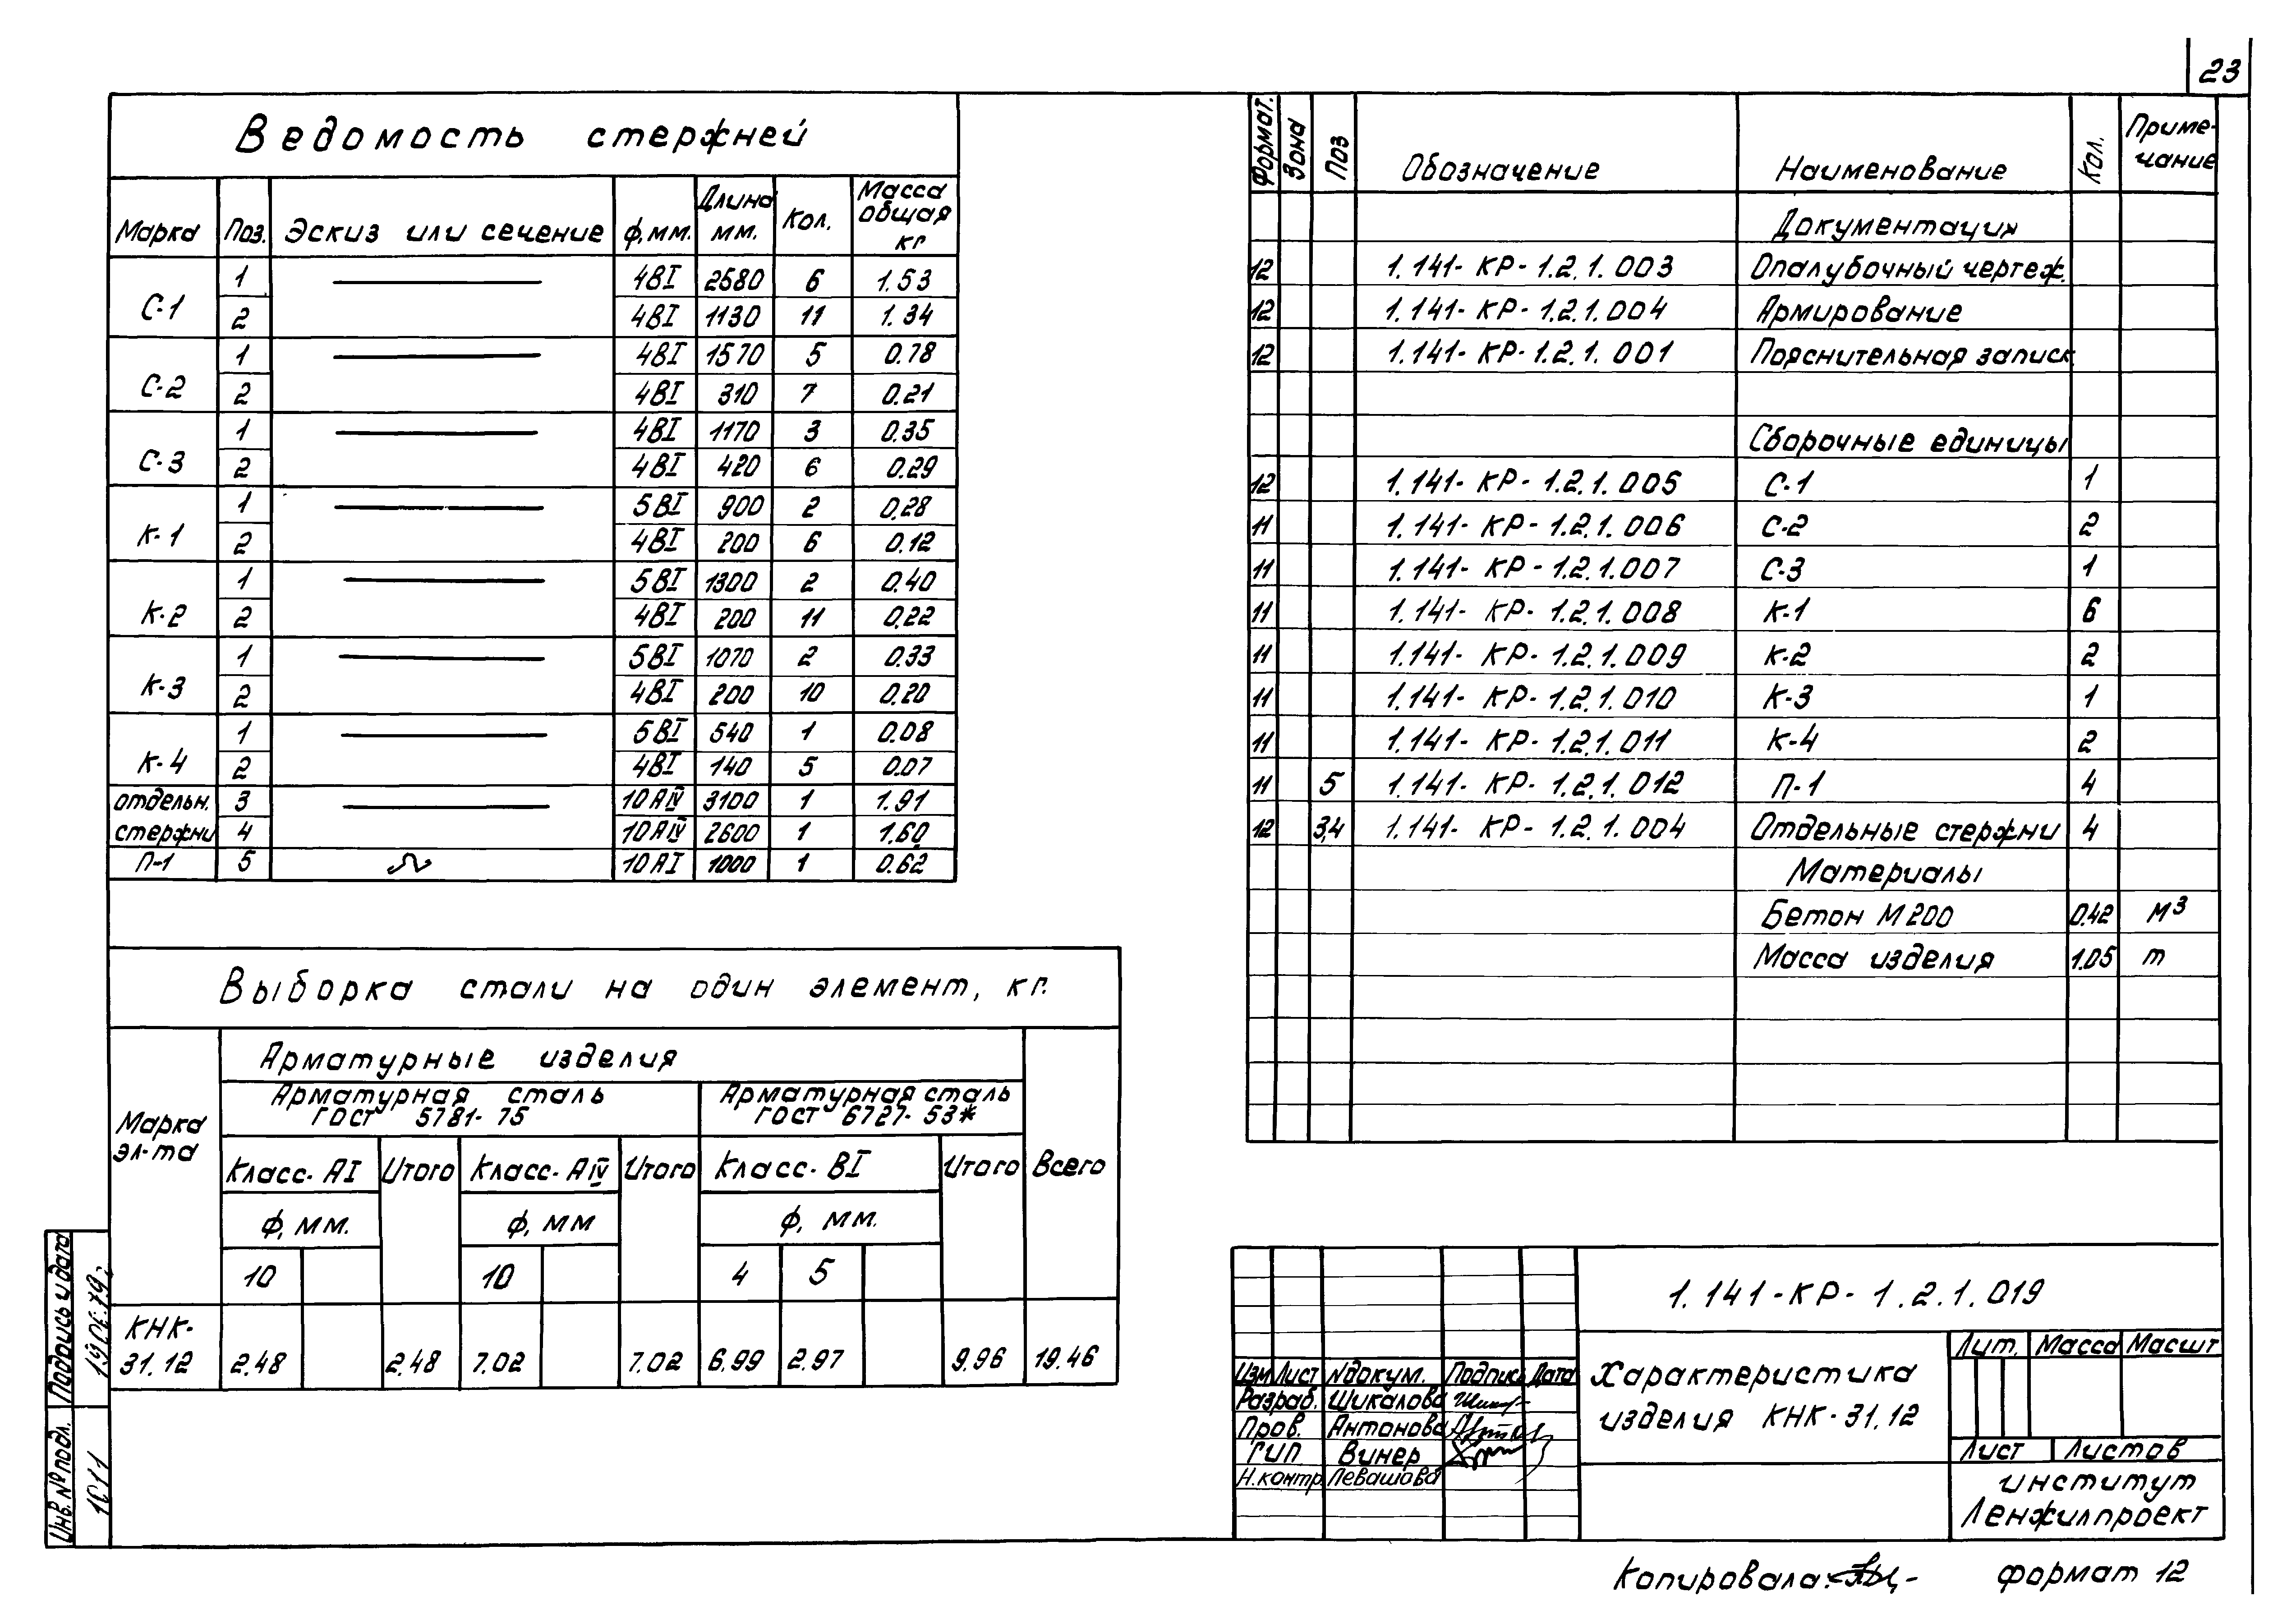 23
Ведомость стержней
Марка Поз. Эскиз или сечение ф,мм. Длина мм. Кол. Масса общая кг
С-1 1 4ВI 2580 6 1.53
2 4ВI 1130 11 1.34
С-2 1 4ВI 1570 5 0.78
2 4ВI 310 7 0.21
С-3 1 4ВI 1170 3 0.35
2 4ВI 420 6 0.29
К-1 1 5ВI 900 2 0.28
2 4ВI 200 6 0.12
К-2 1 5ВI 1300 2 0.40
2 4ВI 200 11 0.22
К-3 1 5ВI 1070 2 0.33
2 4ВI 200 10 0.20
К-4 1 5ВI 540 1 0.08
2 4ВI 140 5 0.07
отдельн. 3 10АIV 3100 1 1.91
стержни 4 10АIV 2600 1 1.60
П-1 5 10АI 1000 1 0.62
Выборка стали на один элемент, кг.
Марка эл-та
Арматурные изделия
Арматурная сталь ГОСТ 5781-75
Арматурная сталь ГОСТ 6727-53*
Класс-АI Итого Класс-АIV Итого Класс-ВI Итого Всего
ф, мм. ф, мм ф, мм.
10 10 4 5
КНК-
31.12 2.48 2.48 7.02 7.02 6.99 2.97 9.96 19.46
Формат. Зона Поз Обозначение Наименование Кол. Приме-
чание
Документация
12 1.141-КР-1.2.1.003 Опалубочный чертеж.
12 1.141-КР-1.2.1.004 Армирование
12 1.141-КР-1.2.1.001 Пояснительная записк
Сборочные единицы
12 1.141-КР-1.2.1.005 С-1 1
11 1.141-КР-1.2.1.006 С-2 2
11 1.141-КР-1.2.1.007 С-3 1
11 1.141-КР-1.2.1.008 К-1 6
11 1.141-КР-1.2.1.009 К-2 2
11 1.141-КР-1.2.1.010 К-3 1
11 1.141-КР-1.2.1.011 К-4 2
11 5 1.141-КР-1.2.1.012 П-1 4
12 3,4 1.141-КР-1.2.1.004 Отдельные стержни 4
Материалы
Бетон М200 0.42 м³
Масса изделия 1.05 т
1.141-КР-1.2.1.019
Изм Лист Nдокум. Подпись Дата
Разраб. Шикалова
Пров. Антонова
ГИП Винер
Н.контр. Левашова
Характеристика
изделия КНК-31.12
Лит. Масса Масшт
Лист Листов
институт
Ленжилпроект
Подпись и дата
Инв. № подл.
1011
Копировала:
формат 12